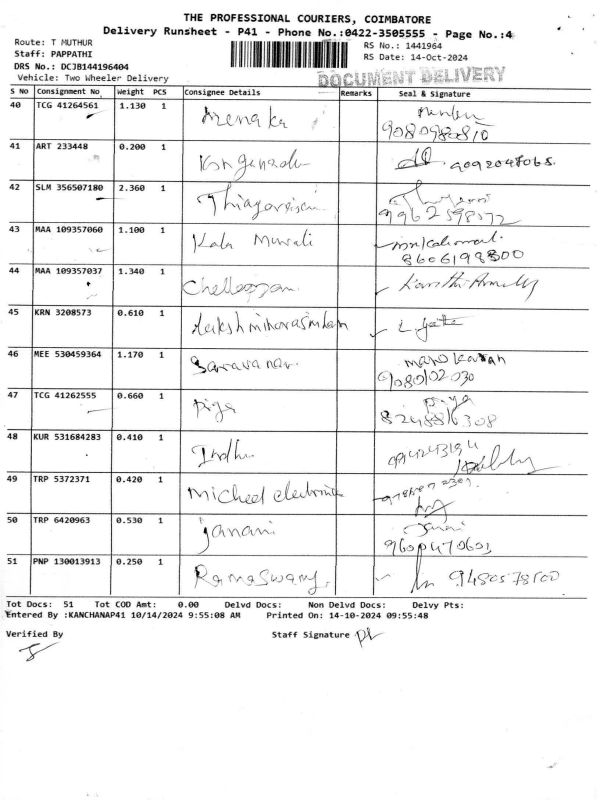 THE PROFESSIONAL COURIERS, COIMBATORE
Delivery Runsheet - P41 - Phone No.:0422-3505555 - Page No.:4
Route: T MUTHUR
Staff: PAPPATHI
DRS No.: DCJB144196404
Vehicle: Two Wheeler Delivery
RS No.: 1441964
RS Date: 14-Oct-2024
DOCUMENT DELIVERY
S No Consignment No Weight PCS Consignee Details Remarks Seal & Signature
40 TCG 41264561 1.130 1 Menaka
9080980810
41 ART 233448 0.200 1 9092047065.
42 SLM 356507180 2.360 1
9962598572
43 MAA 109357060 1.100 1 Kala Murali
8606198800
44 MAA 109357037 1.340 1
45 KRN 3208573 0.610 1
46 MEE 530459364 1.170 1 Saravanan
9080102030
47 TCG 41262555 0.660 1 Priya Priya
8248816308
48 KUR 531684283 0.410 1 Indhu 994243194
49 TRP 5372371 0.420 1 Micheel electronics
50 TRP 6420963 0.530 1 Janani Janani
9600470601
51 PNP 130013913 0.250 1 Ramaswamy 9480578500
Tot Docs: 51 Tot COD Amt: 0.00 Delvd Docs: Non Delvd Docs: Delvy Pts:
Entered By :KANCHANAP41 10/14/2024 9:55:08 AM Printed On: 14-10-2024 09:55:48
Verified By Staff Signature